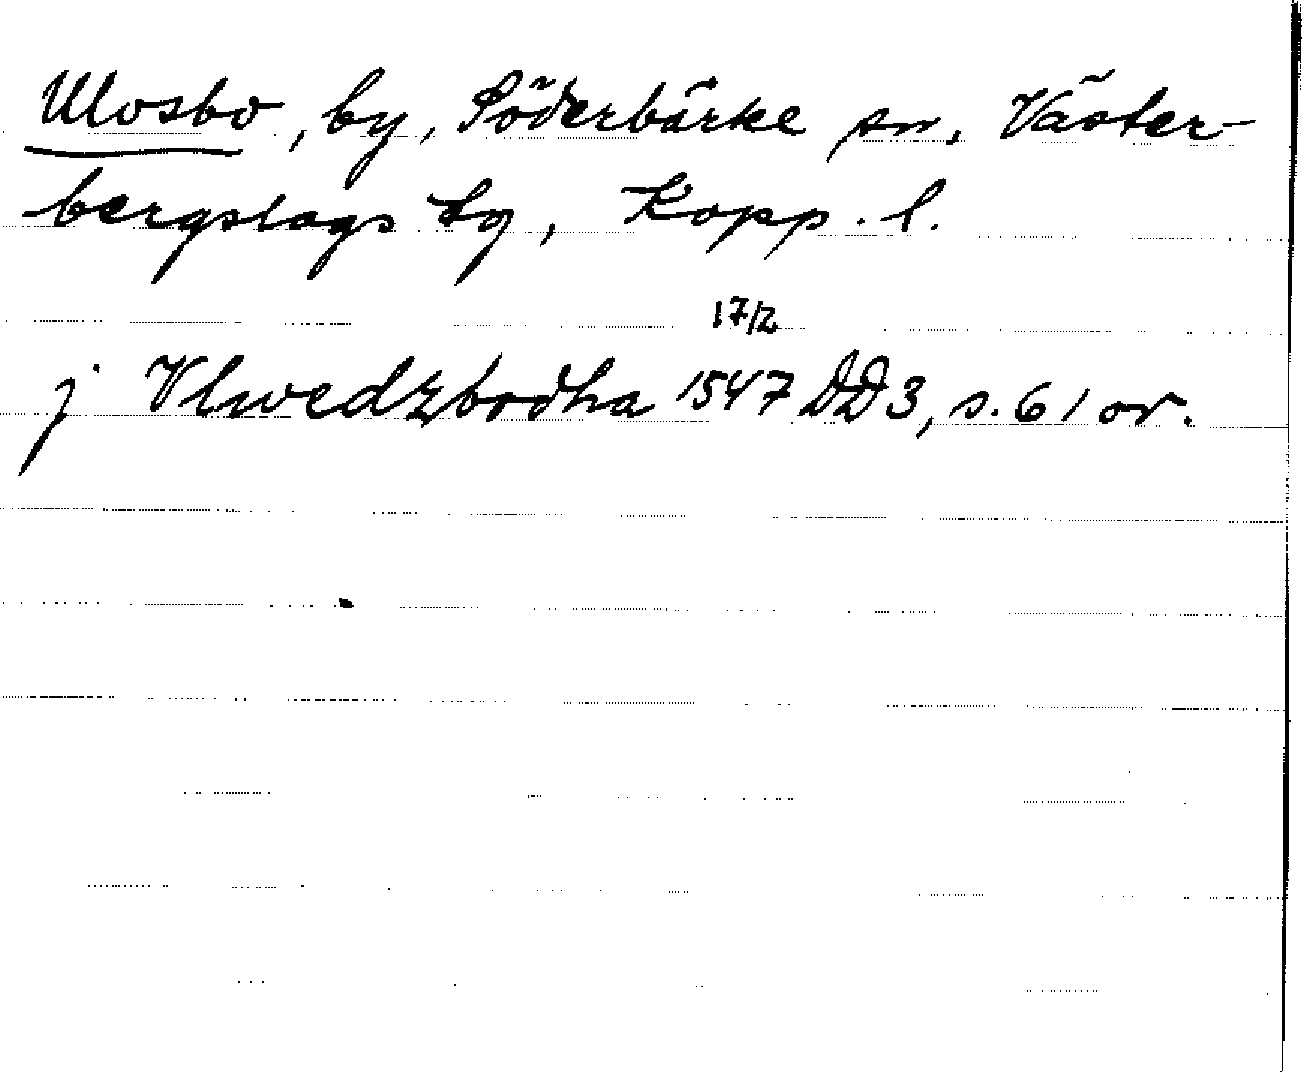 Ulvsbo, by, Söderbärke sn, Väster-
bergslags tg, Kopp. l.
17/2
j Vlwedzbodha 1547 DD3, s. 61 or.